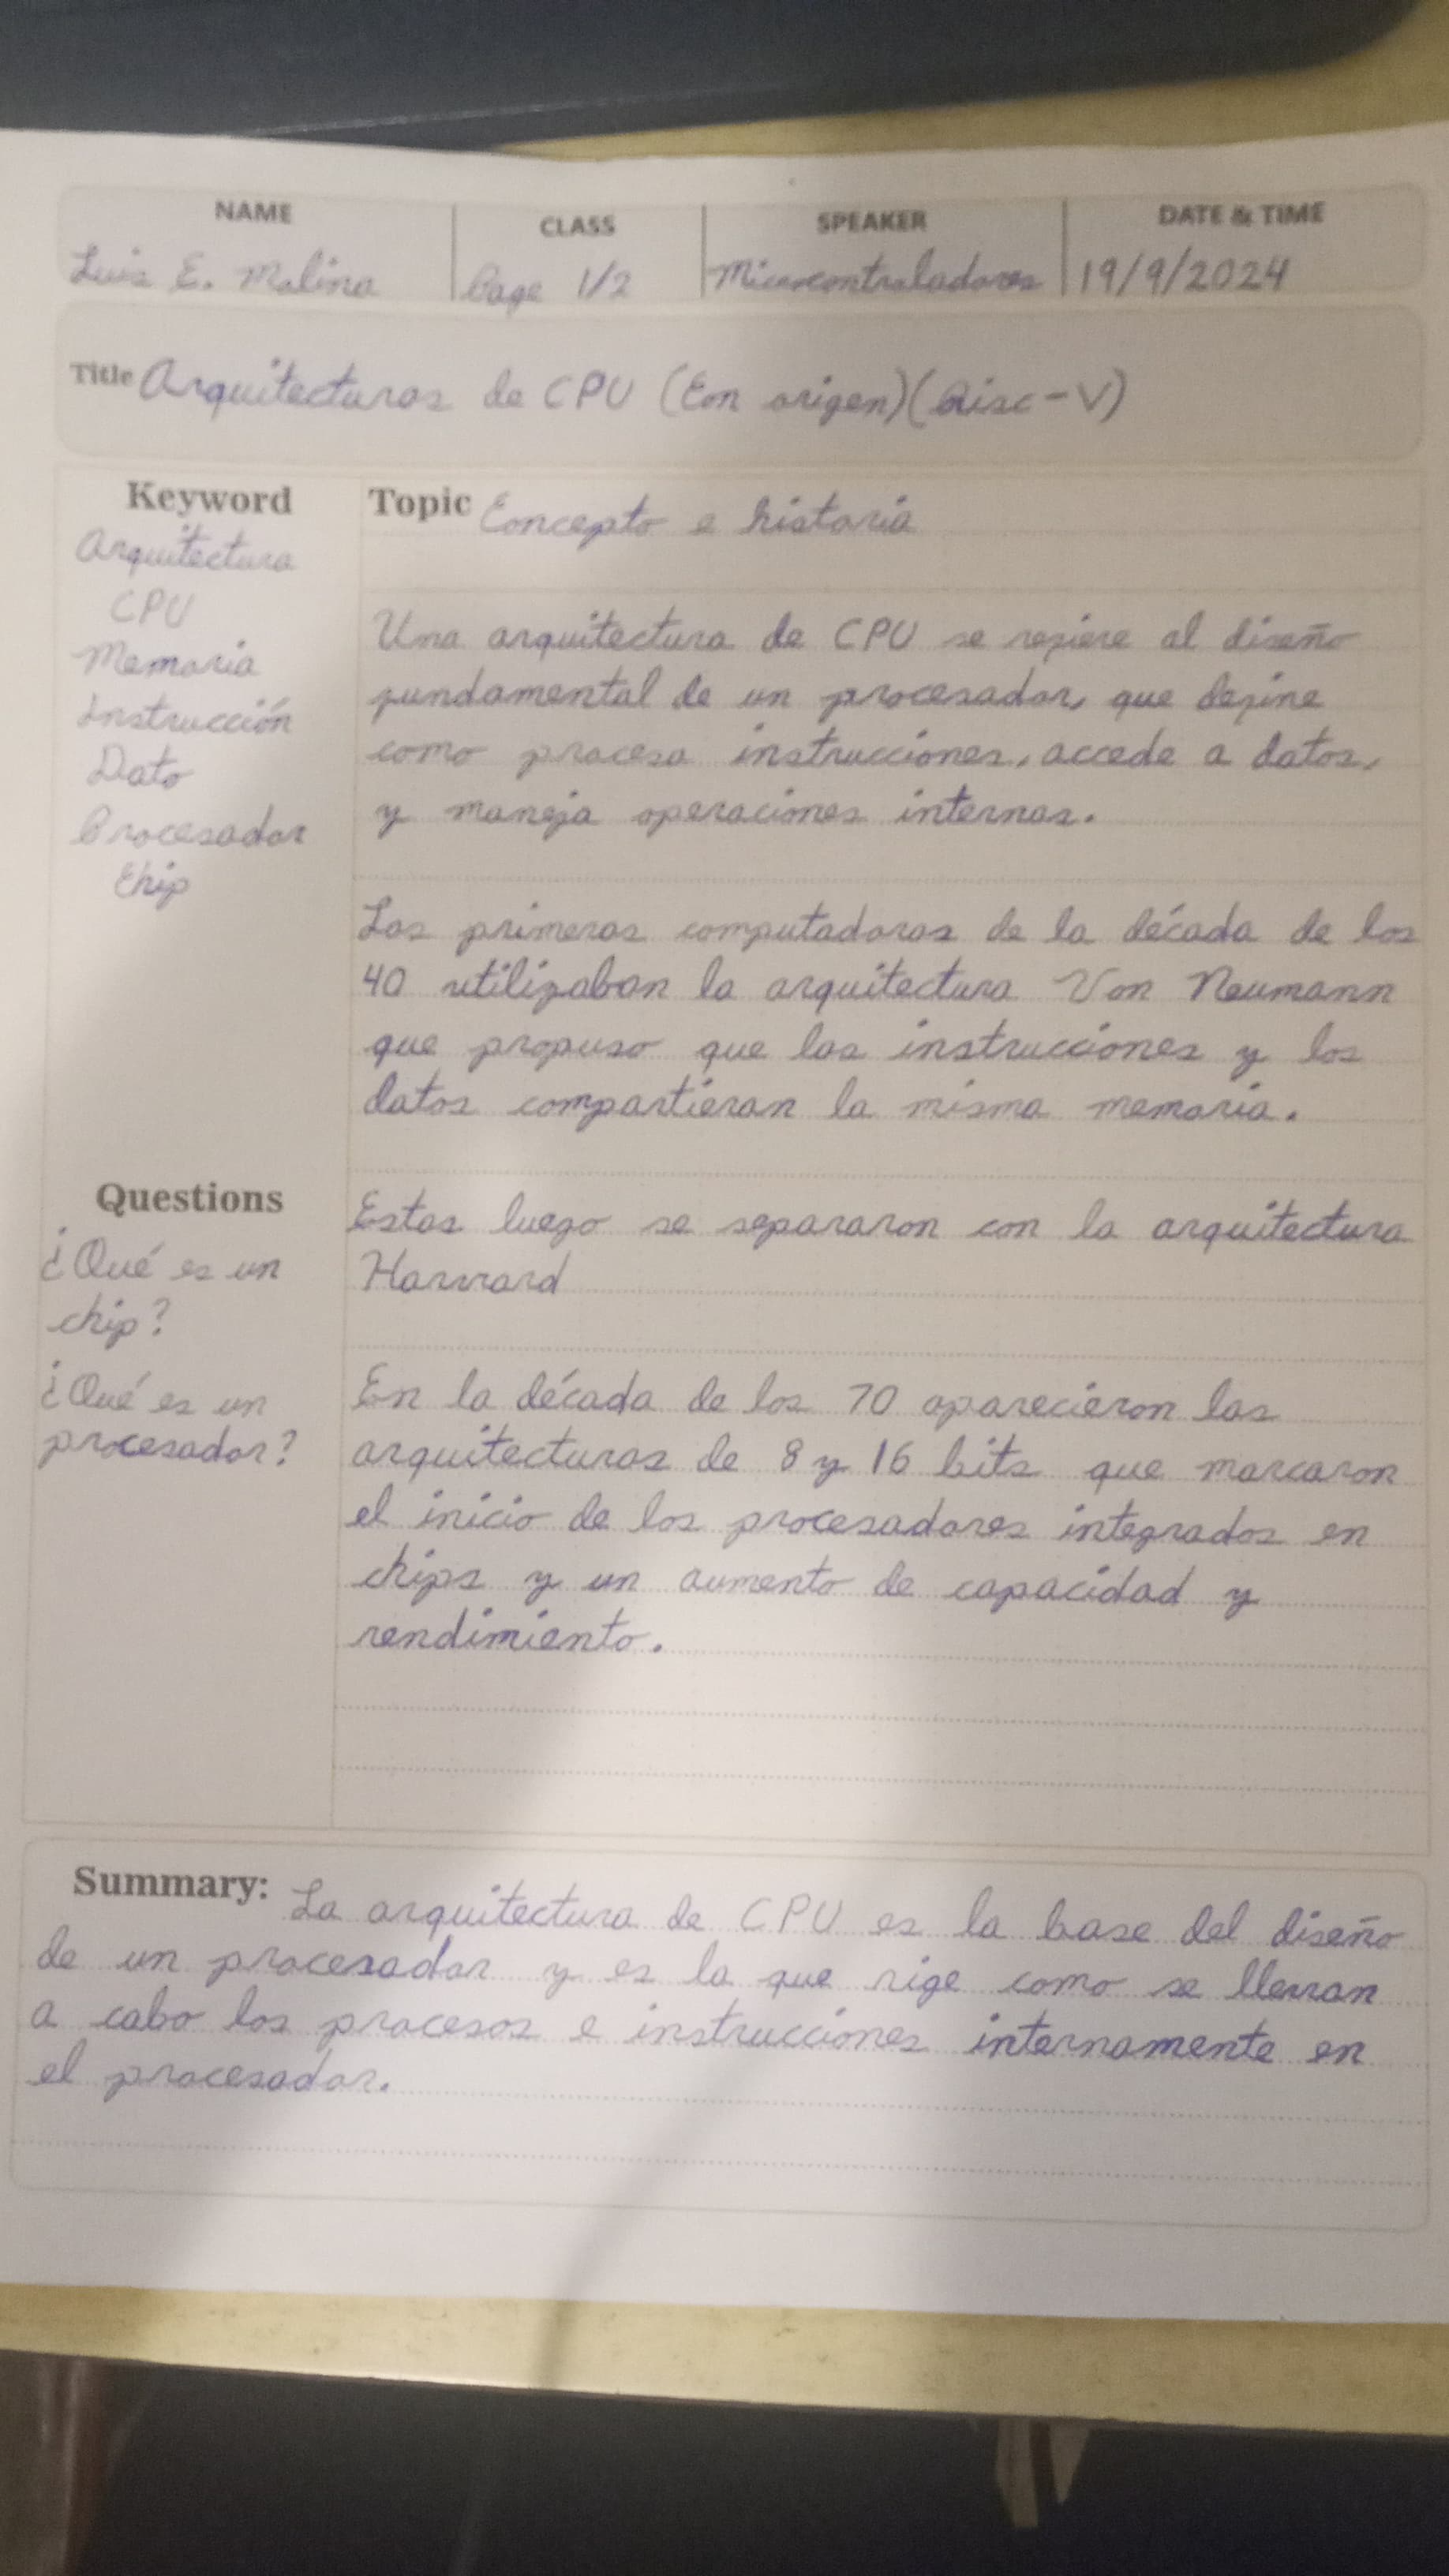 NAME
CLASS
SPEAKER
DATE & TIME
Luis E. Molina
Page 1/2
Microcontroladores
19/9/2024
Title Arquitecturas de CPU (Con origen)(Risc-V)
Keyword
Arquitectura
CPU
Memoria
Instrucción
Dato
Procesador
Chip
Topic Concepto e historia
Una arquitectura de CPU se refiere al diseño
fundamental de un procesador, que define
como procesa instrucciones, accede a datos,
y maneja operaciones internas.
Las primeras computadoras de la década de los
40 utilizaban la arquitectura Von Neumann
que propuso que las instrucciones y los
datos compartieran la misma memoria.
Estas luego se separaron con la arquitectura
Harvard
En la década de los 70 aparecieron las
arquitecturas de 8 y 16 bits que marcaron
el inicio de los procesadores integrados en
chips y un aumento de capacidad y
rendimiento.
Questions
¿Qué es un
chip?
¿Qué es un
procesador?
Summary: La arquitectura de CPU es la base del diseño
de un procesador y es la que rige como se llevan
a cabo los procesos e instrucciones internamente en
el procesador.